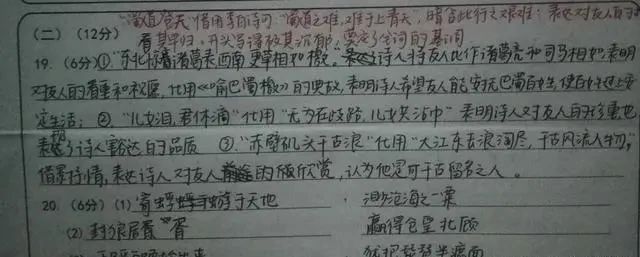 "蜀道登天"借用李白诗句"蜀道之难,难于上青天",暗含此行之艰难;表达对友人的
(二)(12分) 早归,开头写得极其沉郁,奠定了全词的基调
19.(6分)①"东北看惊诸葛表,西南更草相如檄。"诗人将友人比作诸葛亮和司马相如,表明
对友人的看重和祝愿,化用《喻巴蜀檄》的典故,表明诗人希望友人能安抚巴蜀百姓,使百姓过上安
定生活;②"儿女泪,君休滴"化用"无为在歧路,儿女共沾巾"表明诗人对友人的珍重也
表现了诗人豁达的品质 ③"赤壁矶头千古浪"化用"大江东去,浪淘尽,千古风流人物",
借景抒情,表达诗人对友人的欣赏,认为他是可千古留名之人。
20.(6分)(1)寄蜉蝣于天地 渺沧海之一粟
(2)封狼居胥 赢得仓皇北顾
犹抱琵琶半遮面